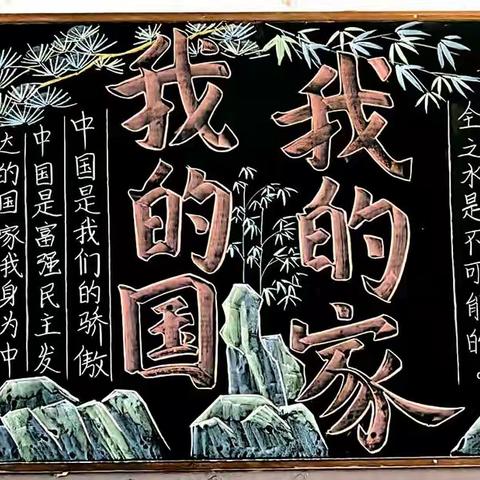 全之水是不可能的。
我的家
我的国
中国是我们的骄傲
中国是富强民主发
大的国家我身为中